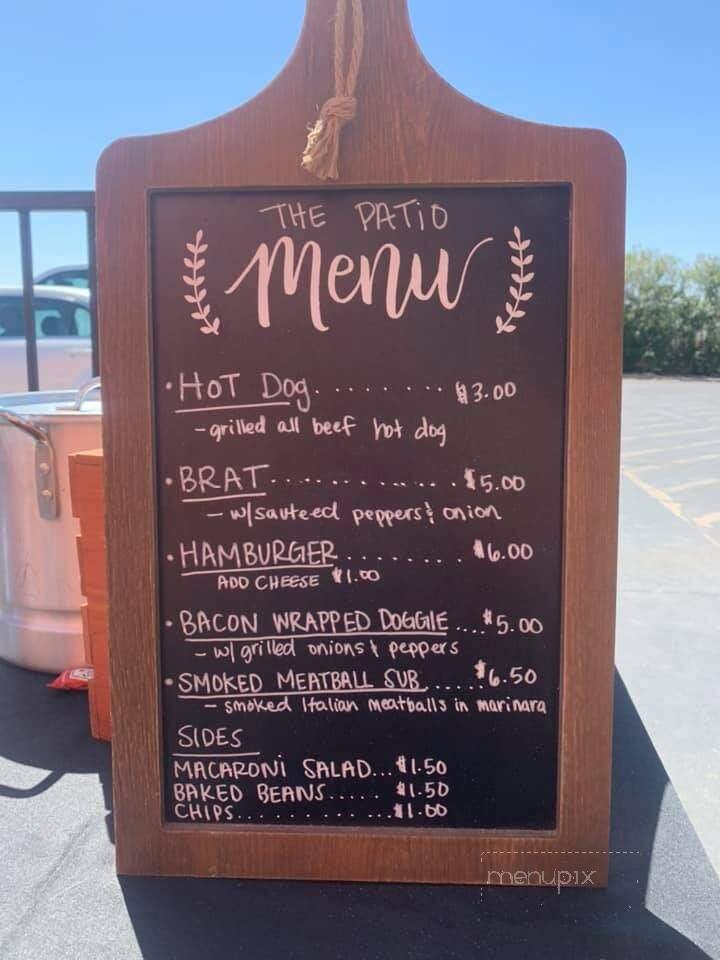 THE PATIO
Menu
• HOT DOG........ $3.00
- grilled all beef hot dog
• BRAT............ $5.00
- w/sauteed peppers & onion
• HAMBURGER........ $6.00
ADD CHEESE $1.00
• BACON WRAPPED DOGGIE.... $5.00
- w/ grilled onions & peppers
• SMOKED MEATBALL SUB...... $6.50
- smoked Italian meatballs in marinara
SIDES
MACARONI SALAD... $1.50
BAKED BEANS..... $1.50
CHIPS............ $1.00
menupix